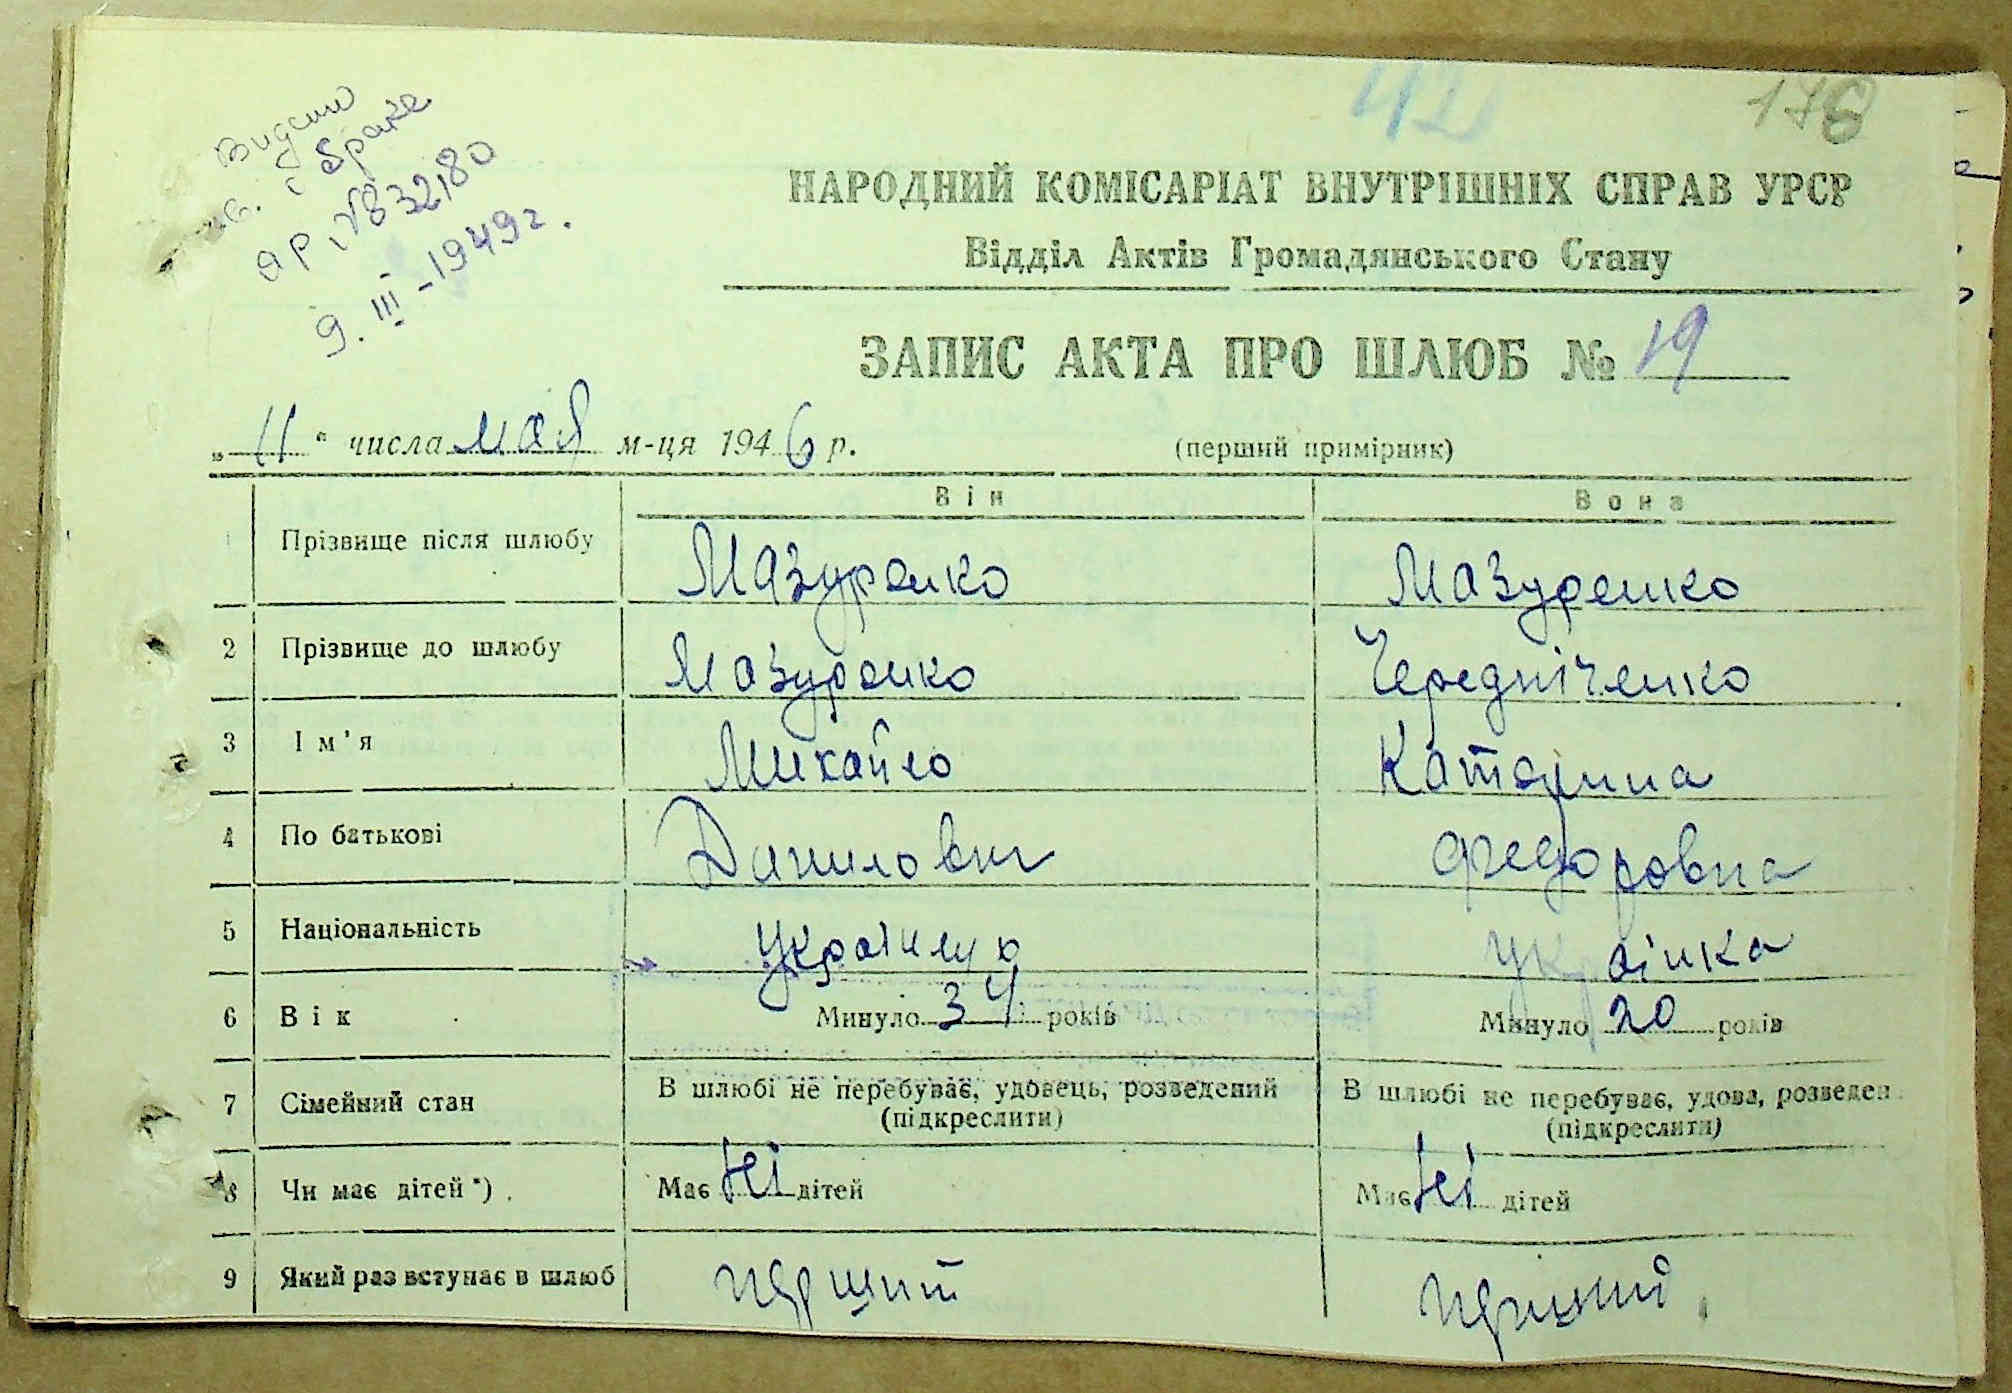 42 178
Видано
св. і браке
ар. № 832180
9. III - 1949 г.
НАРОДНИЙ КОМІСАРІАТ ВНУТРІШНІХ СПРАВ УРСР
Відділ Актів Громадянського Стану
ЗАПИС АКТА ПРО ШЛЮБ № 19
„ 11 “ числа мая м-ця 194 6 р. (перший примірник)
Він Вона
1 Прізвище після шлюбу Мазуренко Мазуренко
2 Прізвище до шлюбу Мазуренко Чередніченко
3 Ім'я Михайло Катерина
4 По батькові Данилович Федоровна
5 Національність українець українка
6 Вік Минуло 34 років Минуло 20 років
7 Сімейний стан В шлюбі не перебуває, удовець, розведений В шлюбі не перебуває, удова, розведен
(підкреслити) (підкреслити)
8 Чи має дітей *) . Має ні дітей Має ні дітей
9 Який раз вступає в шлюб перший перший